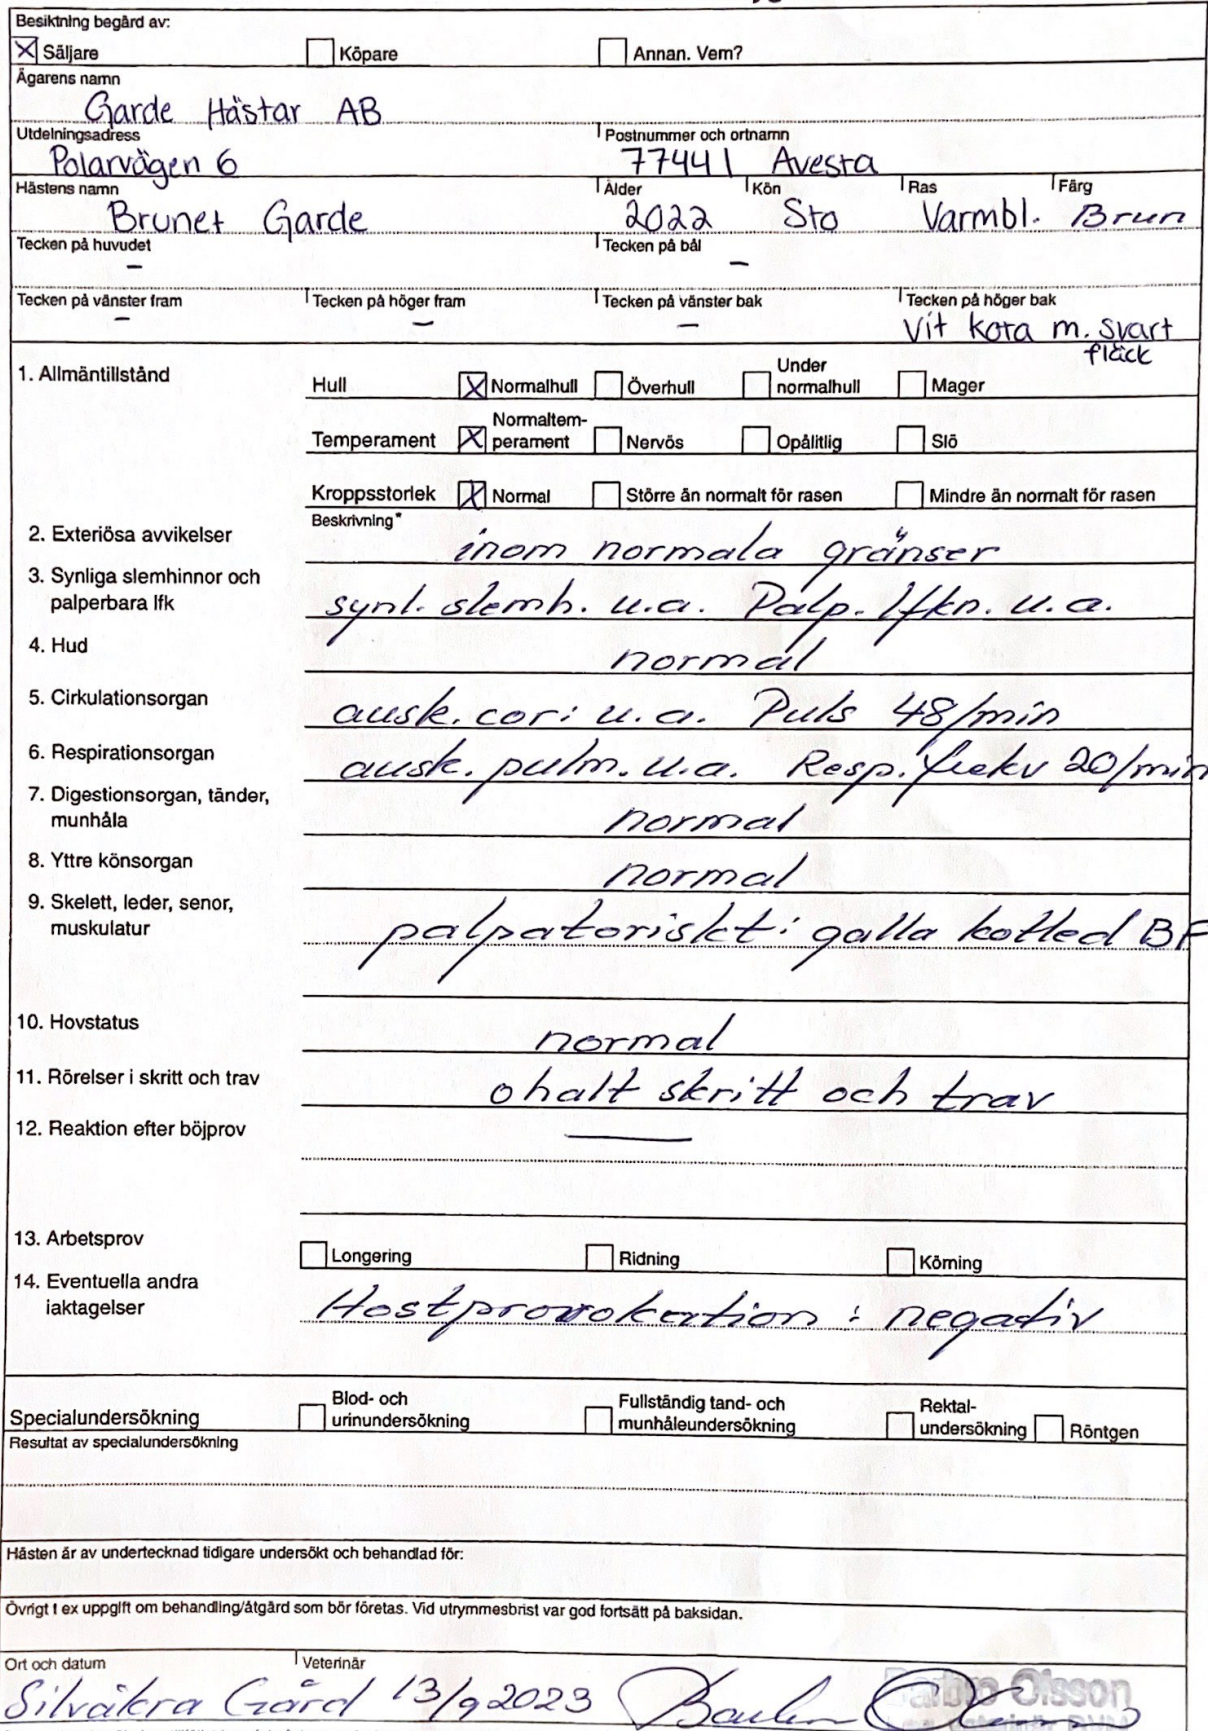 Besiktning begärd av:
☒ Säljare ☐ Köpare ☐ Annan. Vem?
Ägarens namn
Garde Hästar AB
Utdelningsadress Postnummer och ortnamn
Polarvägen 6 77441 Avesta
Hästens namn Ålder Kön Ras Färg
Brunet Garde 2022 Sto Varmbl. Brun
Tecken på huvudet Tecken på bål
– –
Tecken på vänster fram Tecken på höger fram Tecken på vänster bak Tecken på höger bak
– – – Vit kota m. svart
fläck
1. Allmäntillstånd
Hull ☒ Normalhull ☐ Överhull ☐ Under normalhull ☐ Mager
Temperament ☒ Normaltem-
perament ☐ Nervös ☐ Opålitlig ☐ Slö
Kroppsstorlek ☒ Normal ☐ Större än normalt för rasen ☐ Mindre än normalt för rasen
Beskrivning*
2. Exteriösa avvikelser inom normala gränser
3. Synliga slemhinnor och
palperbara lfk synl. slemh. u.a. Palp. lfkn. u.a.
4. Hud normal
5. Cirkulationsorgan ausk. cor: u.a. Puls 48/min
6. Respirationsorgan ausk. pulm. u.a. Resp. frekv 20/min
7. Digestionsorgan, tänder,
munhåla normal
8. Yttre könsorgan normal
9. Skelett, leder, senor,
muskulatur palpatoriskt: galla kotled BF
10. Hovstatus normal
11. Rörelser i skritt och trav ohalt skritt och trav
12. Reaktion efter böjprov —
13. Arbetsprov ☐ Longering ☐ Ridning ☐ Körning
14. Eventuella andra
iaktagelser Hostprovokation : negativ
Specialundersökning ☐ Blod- och
urinundersökning ☐ Fullständig tand- och
munhåleundersökning ☐ Rektal-
undersökning ☐ Röntgen
Resultat av specialundersökning
Hästen är av undertecknad tidigare undersökt och behandlad för:
Övrigt t ex uppgift om behandling/åtgärd som bör företas. Vid utrymmesbrist var god fortsätt på baksidan.
Ort och datum Veterinär
Silvåkra Gård 13/9 2023 Barbro Olsson